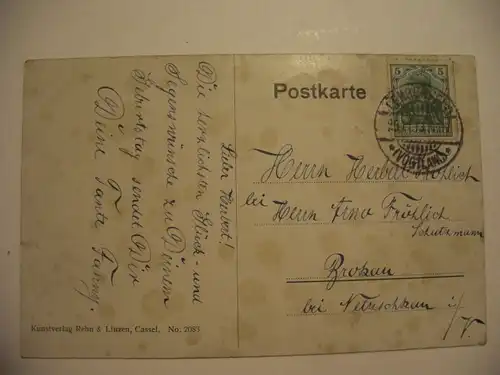 Lieber Herbert!
Die herzlichsten Glück- und
Segenswünsche zu Deinem
Geburtstag sendet Dir
Deine Tante Fanny.
Kunstverlag Rehn & Linzen, Cassel. No. 2083
Postkarte
5 5
(VOGTLAND)
Herrn Herbert Fröhlich
bei Herrn Arno Fröhlich
Schutzmann
Brockau
bei Netzschkau i/V.